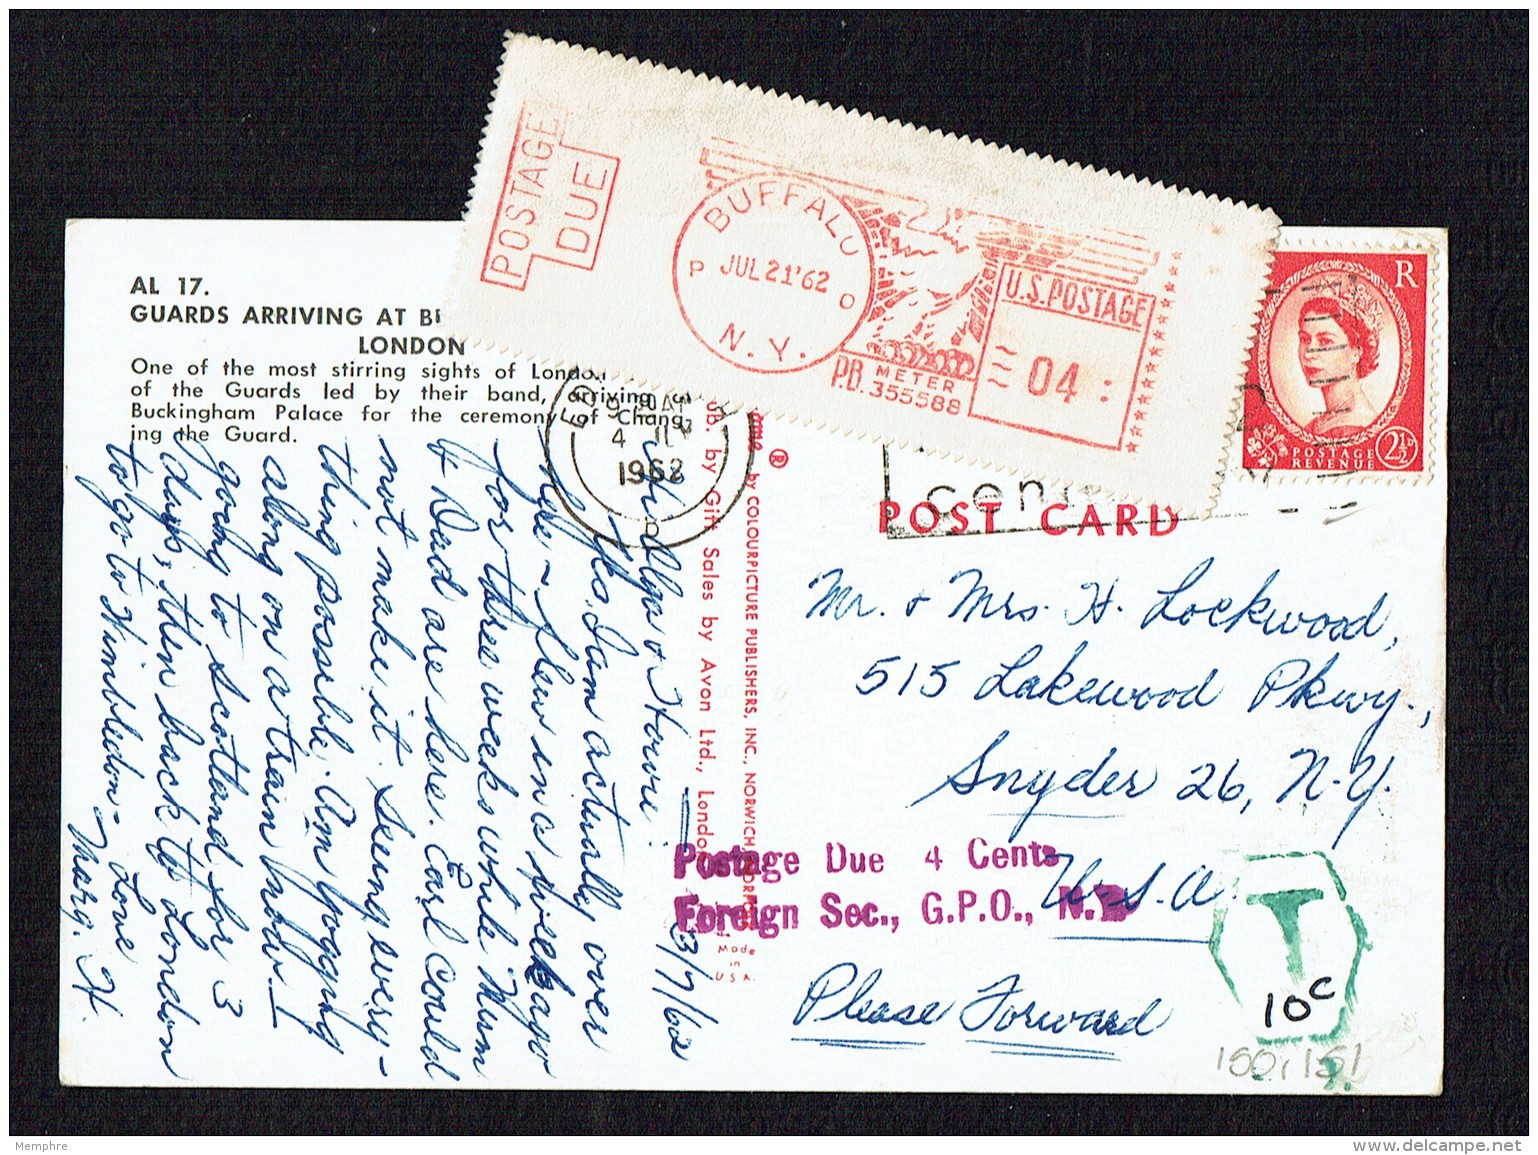 POSTAGE
DUE
BUFFALO
P JUL 21 '62 O
N.Y.
U.S. POSTAGE
04
METER
P.B. 355588
R
POSTAGE
REVENUE
2½D
AL 17.
GUARDS ARRIVING AT
LONDON
One of the most stirring sights of London
of the Guards led by their band, arriving
Buckingham Palace for the ceremony of Chang-
ing the Guard.
4
1962
D
13/7/62
Hildga & Howie:
Yes, I am actually over
here - flew in a week ago
for three weeks while Mum
& Dad are here. Carl could
not make it. Seeing every-
thing possible. Am jogging
along on a train now. I
going to Scotland for 3
days, then back to London
to go to Wimbledon - Love
Marg. H.
by COLOURPICTURE PUBLISHERS, INC., NORWICH, NORFOLK
®
PUB. by Gift Sales by Avon Ltd., London
Made
in
U S A.
POST CARD
Mr. & Mrs. H. Lockwood,
515 Lakewood Pkwy.,
Snyder 26, N.Y.
U.S.A.
Please Forward
Postage Due 4 Cents
Foreign Sec., G.P.O., N.Y.
T
10c
150,151
Memphre
delcampe.net